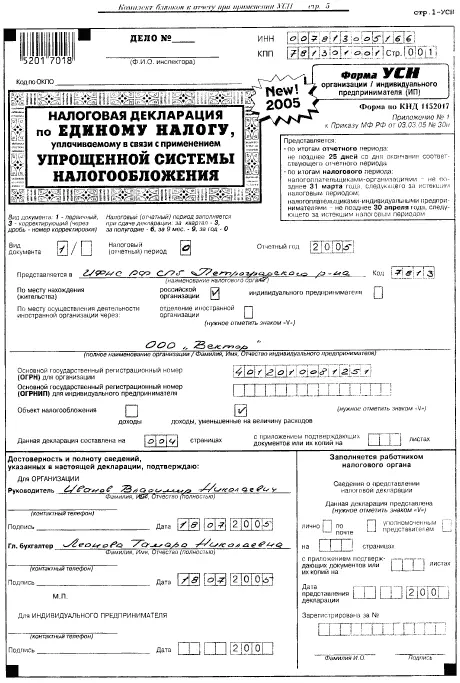 Комплект бланков к отчету при применении УСН стр. 5
стр.1-УСН
5201 7018
ДЕЛО №
(Ф.И.О. инспектора)
ИНН 007813005166
КПП 781301001 Стр. 001
Код по ОКПО
New! 2005
Форма УСН
организации / индивидуального предпринимателя (ИП)
Форма по КНД 1152017
Приложение № 1
к Приказу МФ РФ от 03.03.05 № 30н
НАЛОГОВАЯ ДЕКЛАРАЦИЯ
по ЕДИНОМУ НАЛОГУ,
уплачиваемому в связи с применением
УПРОЩЕННОЙ СИСТЕМЫ
НАЛОГООБЛОЖЕНИЯ
Представляется:
- по итогам отчетного периода:
не позднее 25 дней со дня окончания соответствующего отчетного периода
- по итогам налогового периода:
налогоплательщиками-организациями - не позднее 31 марта года, следующего за истекшим налоговым периодом;
налогоплательщиками-индивидуальными предпринимателями - не позднее 30 апреля года, следующего за истекшим налоговым периодом
Вид документа: 1 - первичный, 3 - корректирующий (через дробь - номер корректировки)
Налоговый (отчетный) период заполняется при сдаче декларации за квартал - 3, за полугодие - 6, за 9 мес. - 9, за год - 0
Вид документа 1 /
Налоговый (отчетный) период 0
Отчетный год 2005
Представляется в ИФНС РФ СПб Петроградского р-на Код 7813
(наименование налогового органа)
По месту нахождения (жительства) российской организации V индивидуального предпринимателя
По месту осуществления деятельности иностранной организации через: отделение иностранной организации
(нужное отметить знаком «V»)
ООО „Вектор"
(полное наименование организации / Фамилия, Имя, Отчество индивидуального предпринимателя)
Основной государственный регистрационный номер (ОГРН) для организации 401201081251
Основной государственный регистрационный номер (ОГРНИП) для индивидуального предпринимателя
Объект налогообложения V (нужное отметить знаком «V»)
доходы доходы, уменьшенные на величину расходов
Данная декларация составлена на 004 страницах с приложением подтверждающих документов или их копий на листах
Достоверность и полноту сведений, указанных в настоящей декларации, подтверждаю:
Для ОРГАНИЗАЦИИ
Руководитель Иванов Владимир Николаевич
Фамилия, Имя, Отчество (полностью)
(контактный телефон)
Подпись Дата 18 07 2005
Гл. бухгалтер Леонова Тамара Николаевна
Фамилия, Имя, Отчество (полностью)
(контактный телефон)
Подпись Дата 18 07 2005
М.П.
Для ИНДИВИДУАЛЬНОГО ПРЕДПРИНИМАТЕЛЯ
(контактный телефон)
Подпись Дата 200
Заполняется работником налогового органа
Сведения о представлении налоговой декларации
Данная декларация представлена (нужное отметить знаком «V»)
лично по почте уполномоченным представителем
на страницах
с приложением подтверждающих документов или их копий на листах
Дата представления декларации 200
Зарегистрирована за №
Фамилия И.О. Подпись